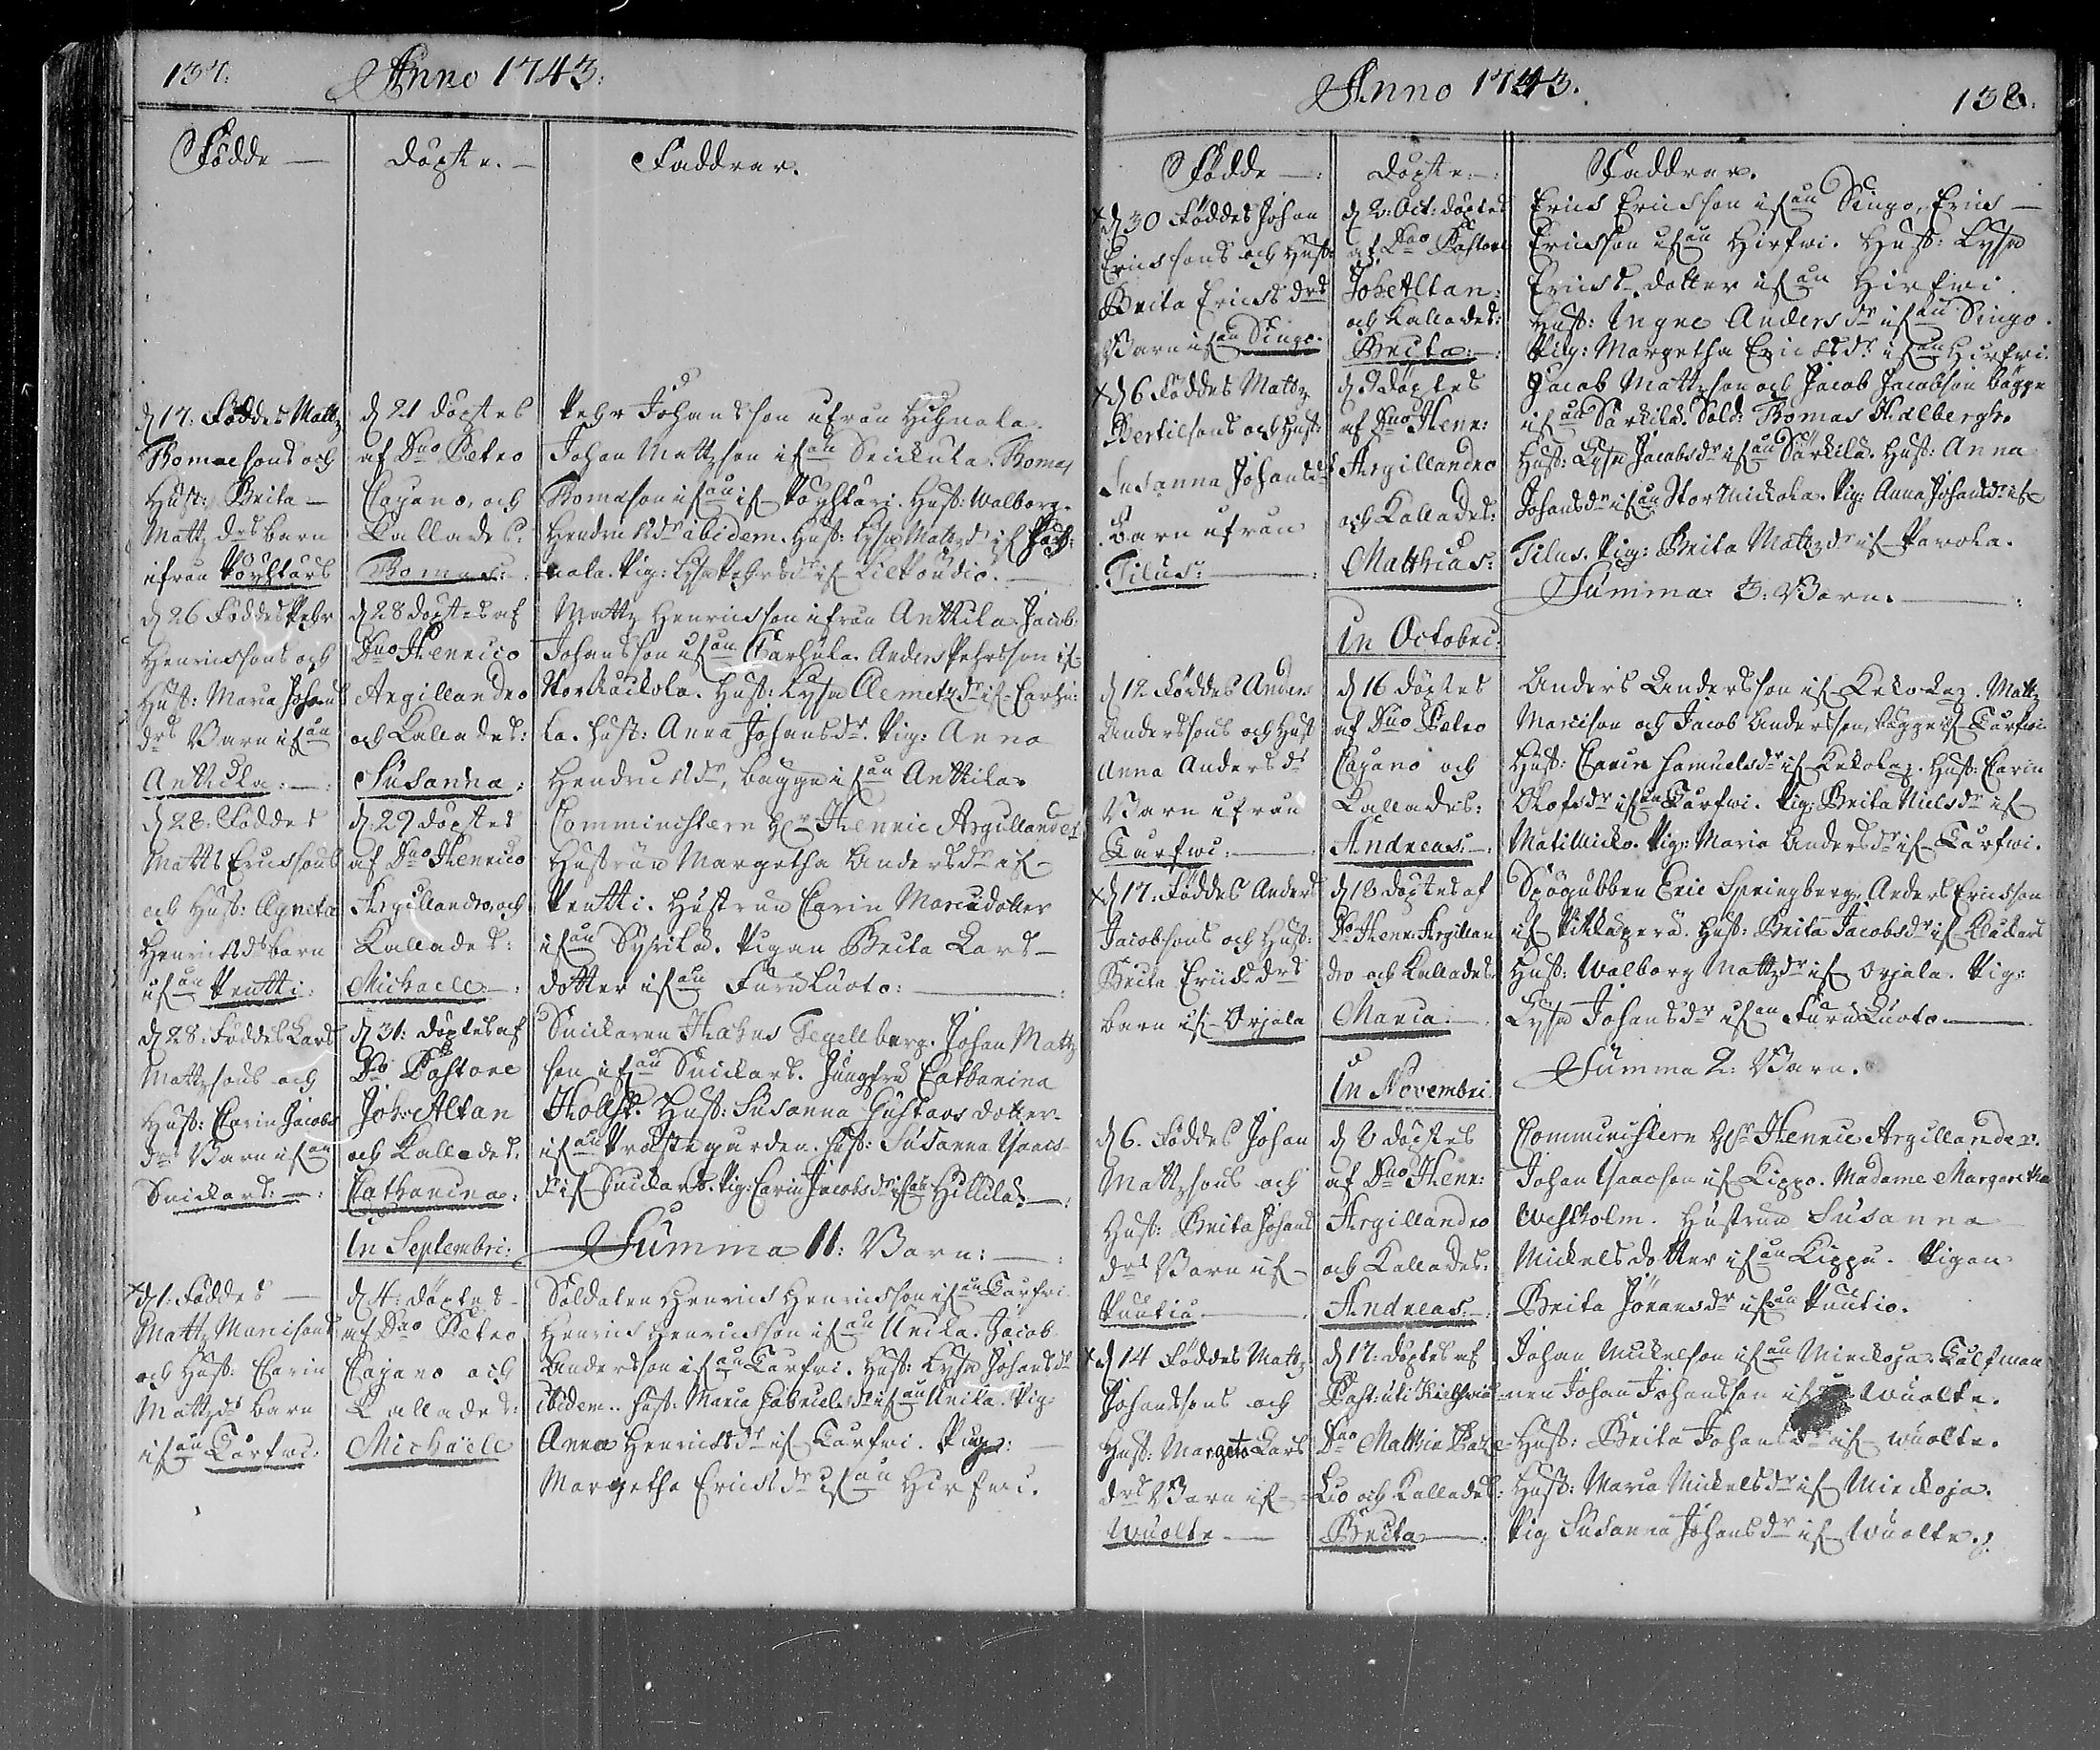 137.
Anno 1743:
Födde
döpte.
Faddrar.
d 17. Föddes Mattz
Tomæsons och
Hust: Brita
Mattz drs barn
ifrån Pöyhtärs
d 21 döptes
af Dno Petro
Cajano, och
Kallades:
Thomas:
Pehr Johansson ifrån
Johan Mattzson ifån Knickula. Thomas
Thomason ifån if Pöyhtäri. Hust: Walborg
Hendrichsdr ibidem. Hust: Lysa Mattzdr if
nala. Pig: Lysa Pehrsdr if
d 26 Föddes Pehr
Henricssons och
Hust: Maria Johans
drs Barn ifån
Anttila:
d 28 döptes af
Dno Henrico
Argillandro
och Kallades:
Susanna:
Mattz Henricsson ifrån Anttila. Jacob
Johansson ifån Carhula. Anders Pehrsson if
Hust: Lysa Clemetzdr if Carhu
la. Hust: Anna Johansdr. Pig: Anna
Hendrichsdr, bägge ifån Anttila.
d 28. Föddes
Matts Ericssons
och Hust: Agneta
Henricsdrs barn
ifån Pentti:
d. 29 döptes
af Dno Henrico
Argillandro, och
Kallades:
Michaell:
Comministern Hr Henric Argillander
Hustrun Margetha Andersdr if
Pentti. Hustrun Carin Marcusdotter
ifån Syrilä. Pigan Brita Lars
dotter ifån Furuluoto:
d 28: Föddes Lars
Mattzsons och
Hust: Carin Jacobs
drs Barn ifån
Snickars:
d 31: döptes af
Do Pastore
Joh: Altan
och Kallades.
Catharina:
Snickaren Hahns Tegellberg. Johan Mattz
son ifån Snickars. Jungfru Catharina
Hollst. Hust: Susanna Gustavs dotter
ifån Prästegården. Hust: Susanna Isaacs
dr if Snickars. Pig: Carin Jacobsdr ifån Hillilä
In Septembri:
Summa 11: Barn:
d 1: Föddes
Mattz Marcisons
och Hust: Carin
Mattzdrs barn
ifån Tarfwi:
d 4: döptes
af Dno Petro
Cajano och
Kallades:
Michaell
Soldaten Henric Henricsson ifån Tarfwi
Henric Henricsson ifån Anila. Jacob
Andersson ifån Tarfwi. Hust: Lysa Johansdr
ibidem. Hust: Maria Gabrielsdr ifån Anila. Pig:
Anna Henricsdr if Tarfwi. Pig:
Margetha Ericsdr ifån Hirfwi.
Anno 1743.
138.
Födde
Döpte
Faddrar.
d 30 Föddes Johan
Ericssons och Hust
Brita Ericsdrs
Barn ifån Singo.
d 2: Oct: döptes
af Dno Pastore
Joh: Altan:
och Kallades:
Brita:
Eric Ericsson ifån Singo. Eric
Ericsson ifån Hirfwi. Hust: Lysa
Erics dotter ifån Hirfwi.
Hust: Ingne Andersdr ifån Singo.
Pig: Margetha Ericsdr ifån Hirfwi.
d 6 Föddes Mattz
Bertilsons och Hust:
Susanna Johansdrs
Barn ifrån
Tilus:
d 9 döptes
af Dno Henr:
Argillandro
och Kallades:
Matthias:
Jacob Mattzson och Jacob Jacobson bägge
ifån Särkilä. Sold: Thomas Hallbergh.
Hust: Lysa Jacobsdr ifån Särkilä. Hust: Anna
Johansdr ifån StorMickola. Pig: Anna Johansdr if
Tilus. Pig: Brita Mattzdr if Pavola.
Summa 3: Barn.
In Octobri:
d 12 Föddes Anders
Anderssons och Hust
Anna Anders dr
Barn ifrån
Tarfwi:
d 16 döptes
af Dno Petro
Cajano och
Kallades:
Andreas:
Anders Andersson if Kekolaz. Mattz
Marcison och Jacob Andersson, bägge if Tarfwi
Hust: Carin Samuelsdr if Kekolaz. Hust: Carin
Olofsdr ifån Tarfwi. Pig: Brita Nielsdr if
Matillicko. Pig: Maria Andersdr if Tarfwi.
d 17: Föddes Anders
Jacobsons och Hust:
Brita Erics drs
barn if Orjala
d 18 döptes af
Do Henr: Argillan
dro och Kallades
Maria:
Spögubben Eric Springberg. Anders Ericsson
if Pitkäperä. Hust: Brita Jacobsdr if
Hust: Walborg Mattzdr if Orjala. Pig:
Lysa Johansdr ifån Furuluoto
Summa 2: Barn.
In Novembri
d 6. Föddes Johan
Mattzsons och
Hust: Brita Johans
drs Barn if
Puutio
d 8 döptes
af Dno Henr:
Argillandro
och Kallades:
Andreas:
Comministern Hr Henric Argillander.
Johan Isaacson if Kippo. Madame Margaretha
Westholm. Hustrun Susanna
Mickelsdotter ifån Kippo. Pigan
Brita Jöransdr ifån Puutio.
d 14 Föddes Mattz
Johanssons och
Hust: Margeta Lars
drs Barn if
Wuolte
d 17: döptes af
Past:
Dno Matthia
lio och Kallades:
Brita
Johan Mickelson ifån Mieckoja.
nen Johan Johansson if Wuolte.
Hust: Brita Johansdr if Wuolte.
Hust: Maria Mickelsdr if Mieckoja.
Pig Susanna Johansdr if Wuolte.